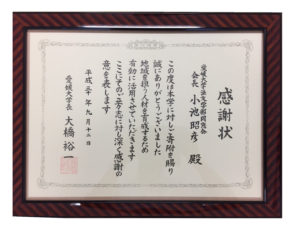 感謝状
愛媛大学法文学部同窓会
会長 小池昭彦 殿
この度は本学に対しご寄附を賜り
誠にありがとうございました
地域を担う人材を育成するため
有効に活用させていただきます
ここにそのご芳志に対し深く感謝の
意を表します
平成三十年九月十二日
愛媛大学長 大橋裕一